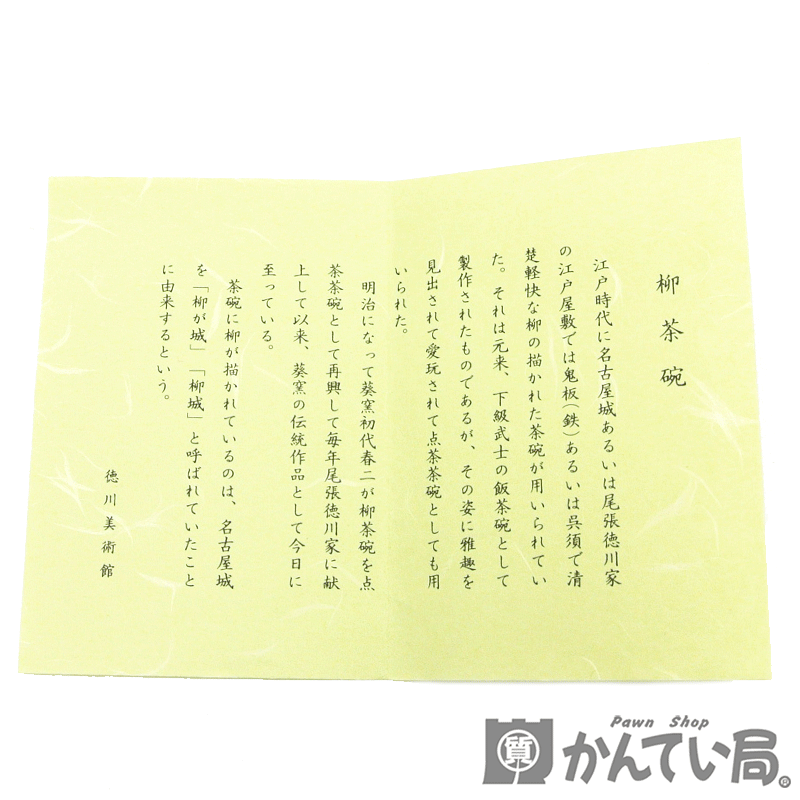 柳茶碗
江戸時代に名古屋城あるいは尾張徳川家
の江戸屋敷では鬼板(鉄)あるいは呉須で清
楚軽快な柳の描かれた茶碗が用いられてい
た。それは元来、下級武士の飯茶碗として
製作されたものであるが、その姿に雅趣を
見出されて愛玩されて点茶茶碗としても用
いられた。
明治になって葵窯初代春二が柳茶碗を点
茶茶碗として再興して毎年尾張徳川家に献
上して以来、葵窯の伝統作品として今日に
至っている。
茶碗に柳が描かれているのは、名古屋城
を「柳が城」「柳城」と呼ばれていたこと
に由来するという。
徳川美術館
Pawn Shop
質 かんてい局®